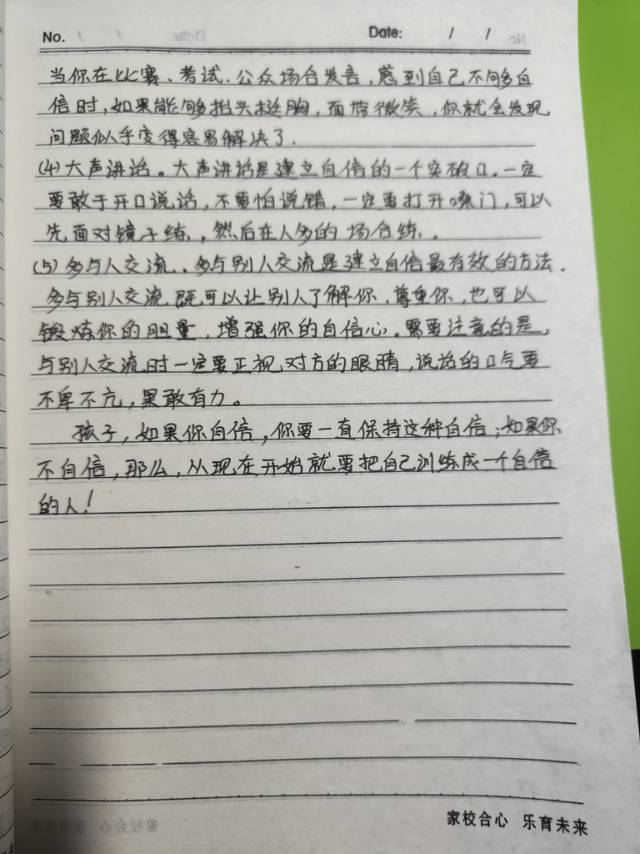 No. Date: / /
当你在比赛、考试、公众场合发言，感到自己不够自
信时，如果能够抬头挺胸，面带微笑，你就会发现
问题似乎变得容易解决了.
(4)大声讲话。大声讲话是建立自信的一个突破口.一定
要敢于开口说话，不要怕说错，一定要打开嗓门，可以
先面对镜子练.，然后在人多的场合练.。
(5)多与人交流.，多与别人交流是建立自信最有效的方法.
多与别人交流既可以让别人了解你，尊重你，也可以
锻炼你的胆量，增强你的自信心。需要注意的是，
与别人交流时一定要正视对方的眼睛，说话的口气要
不卑不亢，果敢有力。
孩子，如果你自信，你要一直保持这种自信；如果你
不自信，那么，从现在开始就要把自己训练成一个自信
的人！
家校合心 乐育未来